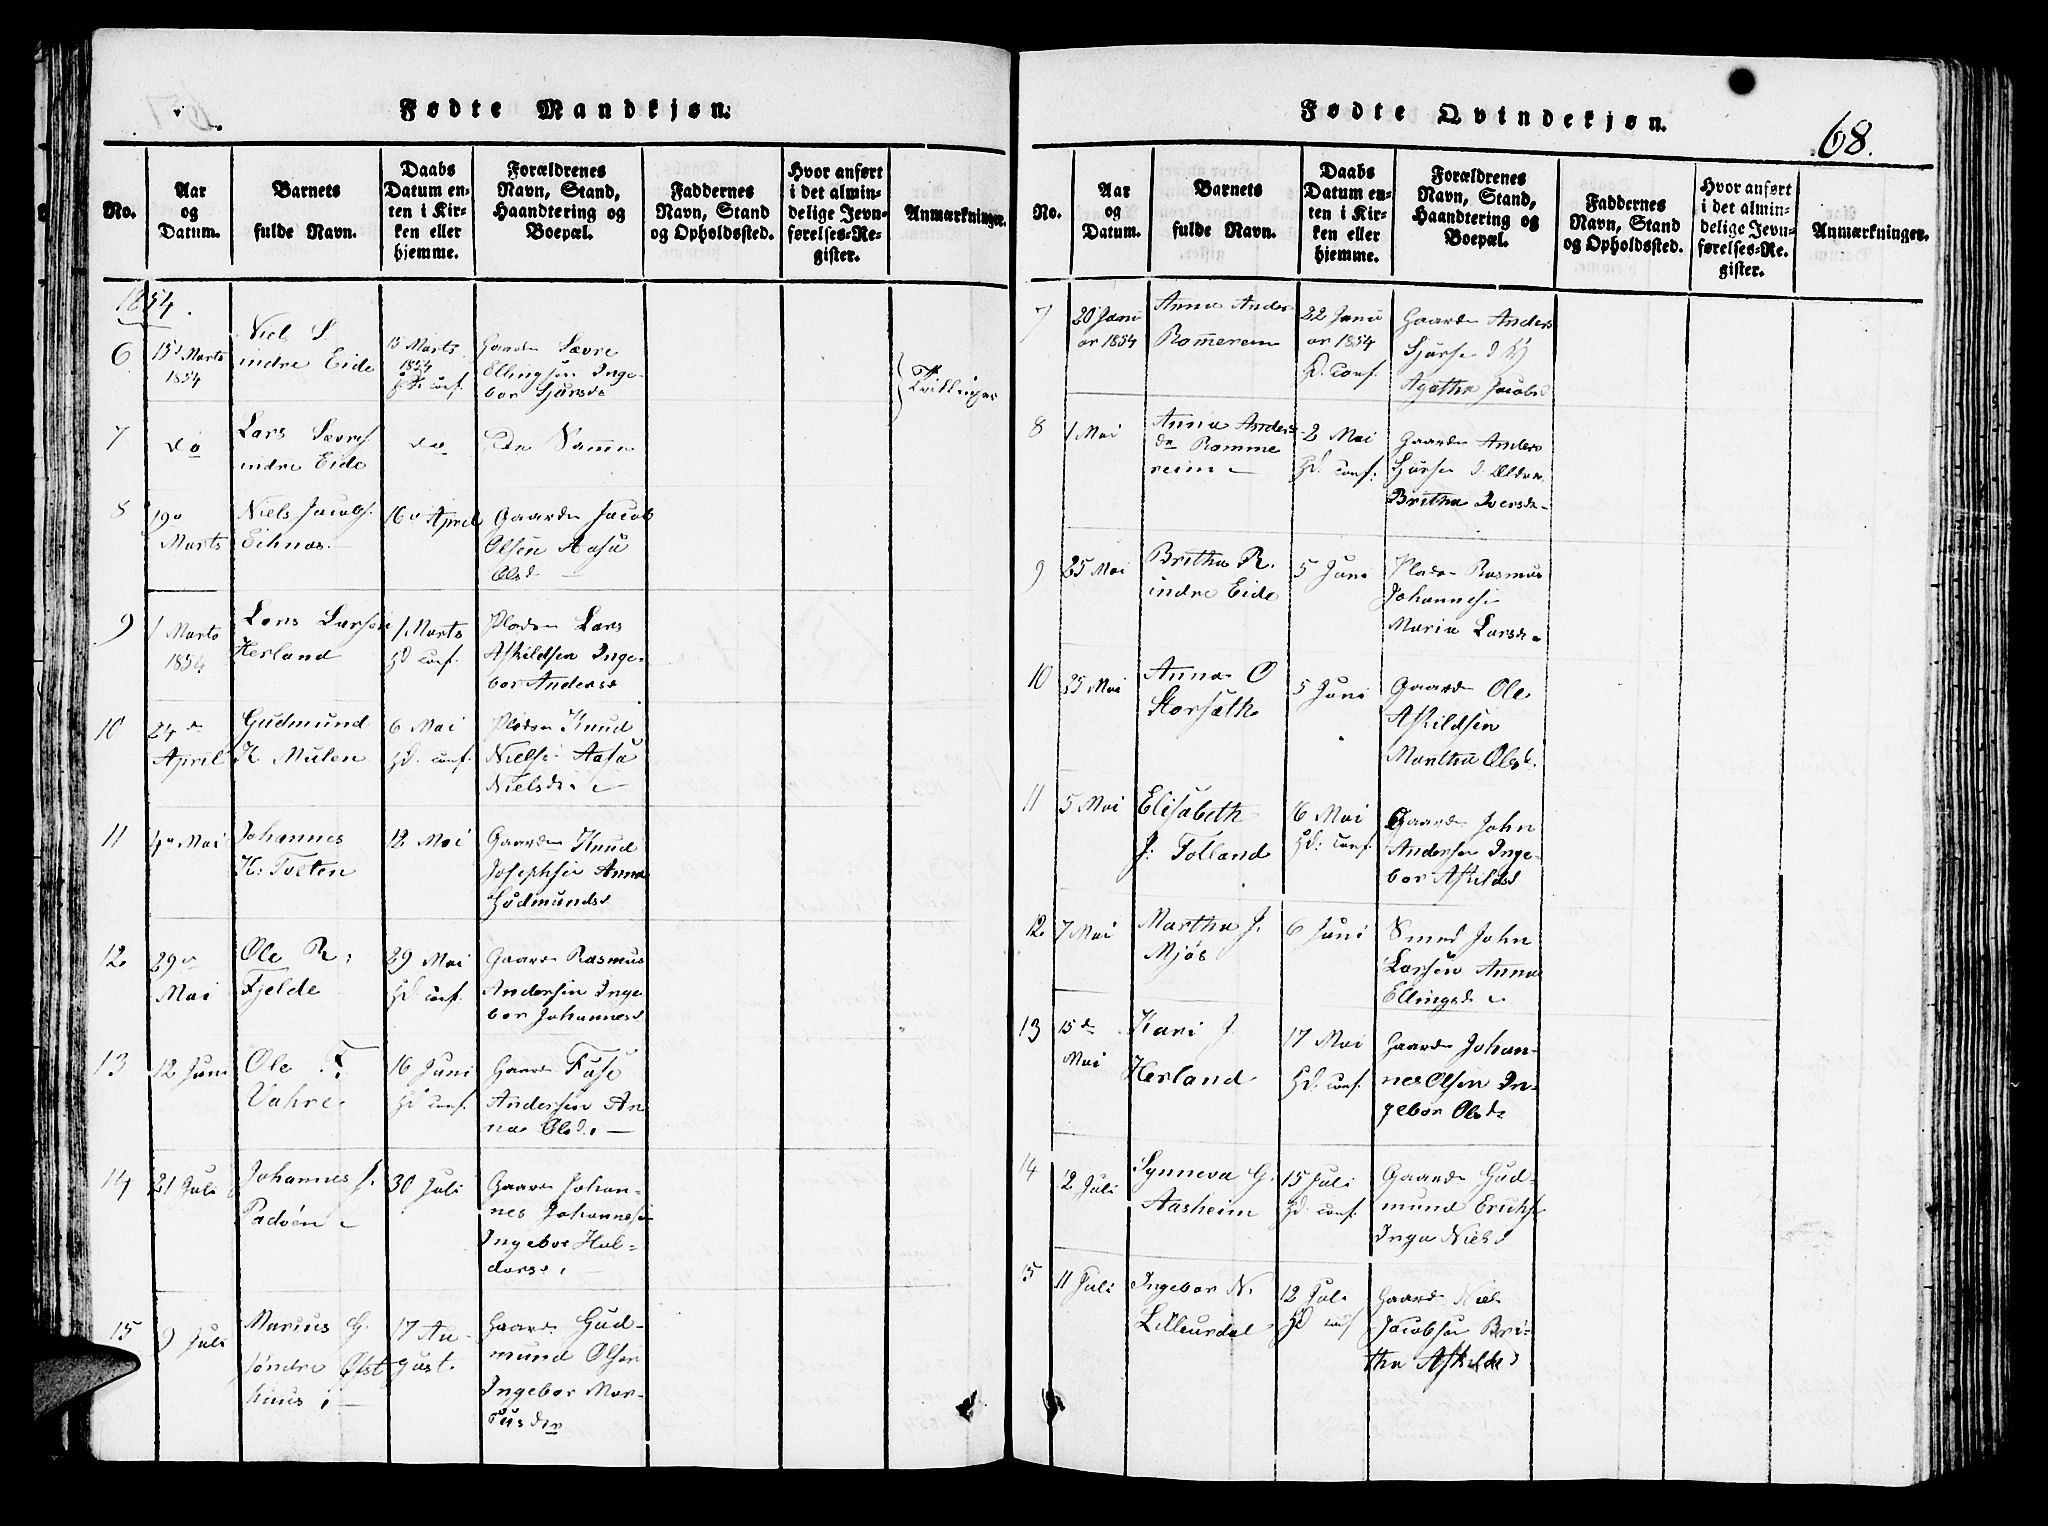 Fødte Mandkjøn.
No.
Aar
og
Datum.
Barnets
fulde Navn.
Daabs
Datum en-
ten i Kir-
ken eller
hjemme.
Forældrenes
Navn, Stand,
Haandtering og
Boepæl.
Faddernes
Navn, Stand
og Opholdssted.
Hvor anført
i det almin-
delige Jevn-
førelses-Re-
gister.
Anmærkninger.
1854.
6
13 Marts
1854
Niel S.
indre Eide
13 Marts
1854
conf.
Gaardm Sævre
Ellingsen Inge-
bor Sjursd
Tvillinger
7
do
Lars Sævres.
indre Eide
do
De Samme
8
19
Marts
Niels Jacobs.
Eihnæs
16 April
Gaardm Jacob
Olsen Aasa
Olsd
9
1 Marts
1854
Lars Larsen
Herland
1. Marts
Hd conf.
Pladsm Lars
Askildsen Inge-
bor Andersd
10
24de
April
Gudmund
K Mulen
6 Mai
Hd. conf.
Pladsm Knud
Nielsen Aasa
Nielsd
11
4 Mai
Johannes
K: Toften
12 Mai
Gaardm Knud
Josephsen Anna
Gudmundsd
12
29
Mai
Ole R.
Fjelde
29 Mai
Hd conf.
Gaardm Rasmus
Andersen Inge
bor Johannesd
13
12 Juni
Ole F.
Vahre
16 Juni
Hd conf.
Gaardm Fase
Andersen An
na Olsd.
14
21 Juli
Johannes J.
Padøen
30 Juli
Gaardm Johan-
nes Johannesen
Ingebor Hal-
dorsd
15
9 Juli
Marius G.
søndre Øst
huus
17 Au-
gust.
Gaardm Gud-
mund Olsen
Ingebor Mar-
Fødte Qvindekjøn.
68.
No.
Aar
og
Datum.
Barnets
fulde Navn.
Daabs
Datum en-
ten i Kir-
ken eller
hjemme.
Forældrenes
Navn, Stand,
Haandtering og
Boepæl.
Faddernes
Navn, Stand
og Opholdssted.
Hvor anført
i det almin-
delige Jevn-
førelses-Re-
gister.
Anmærkninger.
7
20 Janu
ar 1854
Anna Anders
Romerem
22 Janu
ar 1854
Hd. conf.
Gaardm Anders
Sjurse d Y
Agatha Jacobsd
8
1 Mai
Anna Anders-
da Romme
reim
2 Mai
Hd conf.
Gaardm Anders
Sjursen d. Ældre
Britha Iversd
9
25 Mai
Britha R.
indre Eide
5 Juni
Pladsm Rasmus
Johannesen
Maria Larsd
10
25 Mai
Anna O
Storsæth
5 Juni
Gaardm Ole
Askildsen
Martha Olsd.
11
5 Mai
Elisabeth
J: Tolland
16 Mai
Hd: conf.
Gaardm John
Andersen Inge-
bor Askildsd
12
7 Mai
Martha J.
Mjøs
6 Juni
Smed John
Larsen Anna
Ellingsd
13
15de
Mai
Kari J
Herland
17 Mai
Hd. conf.
Gaardm Johan-
nes Olsen In-
gebor Olsd
14
12 Juli
Synneva G.
Aasheim
15 Juli
Hd. conf.
Gaardm Gud-
mund Erichs
Inga Nielsd
15
11 Juli
Ingebor N.
Lilleurdal
12 Juli
Hd conf
Gaardm Niels
Jacobsen Bri-
tha Askildsd